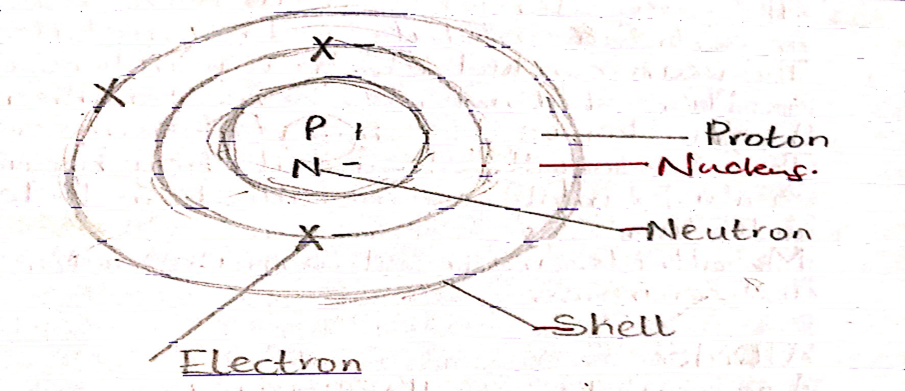 X -
X
P I
N -
Proton
Nucleus.
Neutron
X -
Shell
Electron